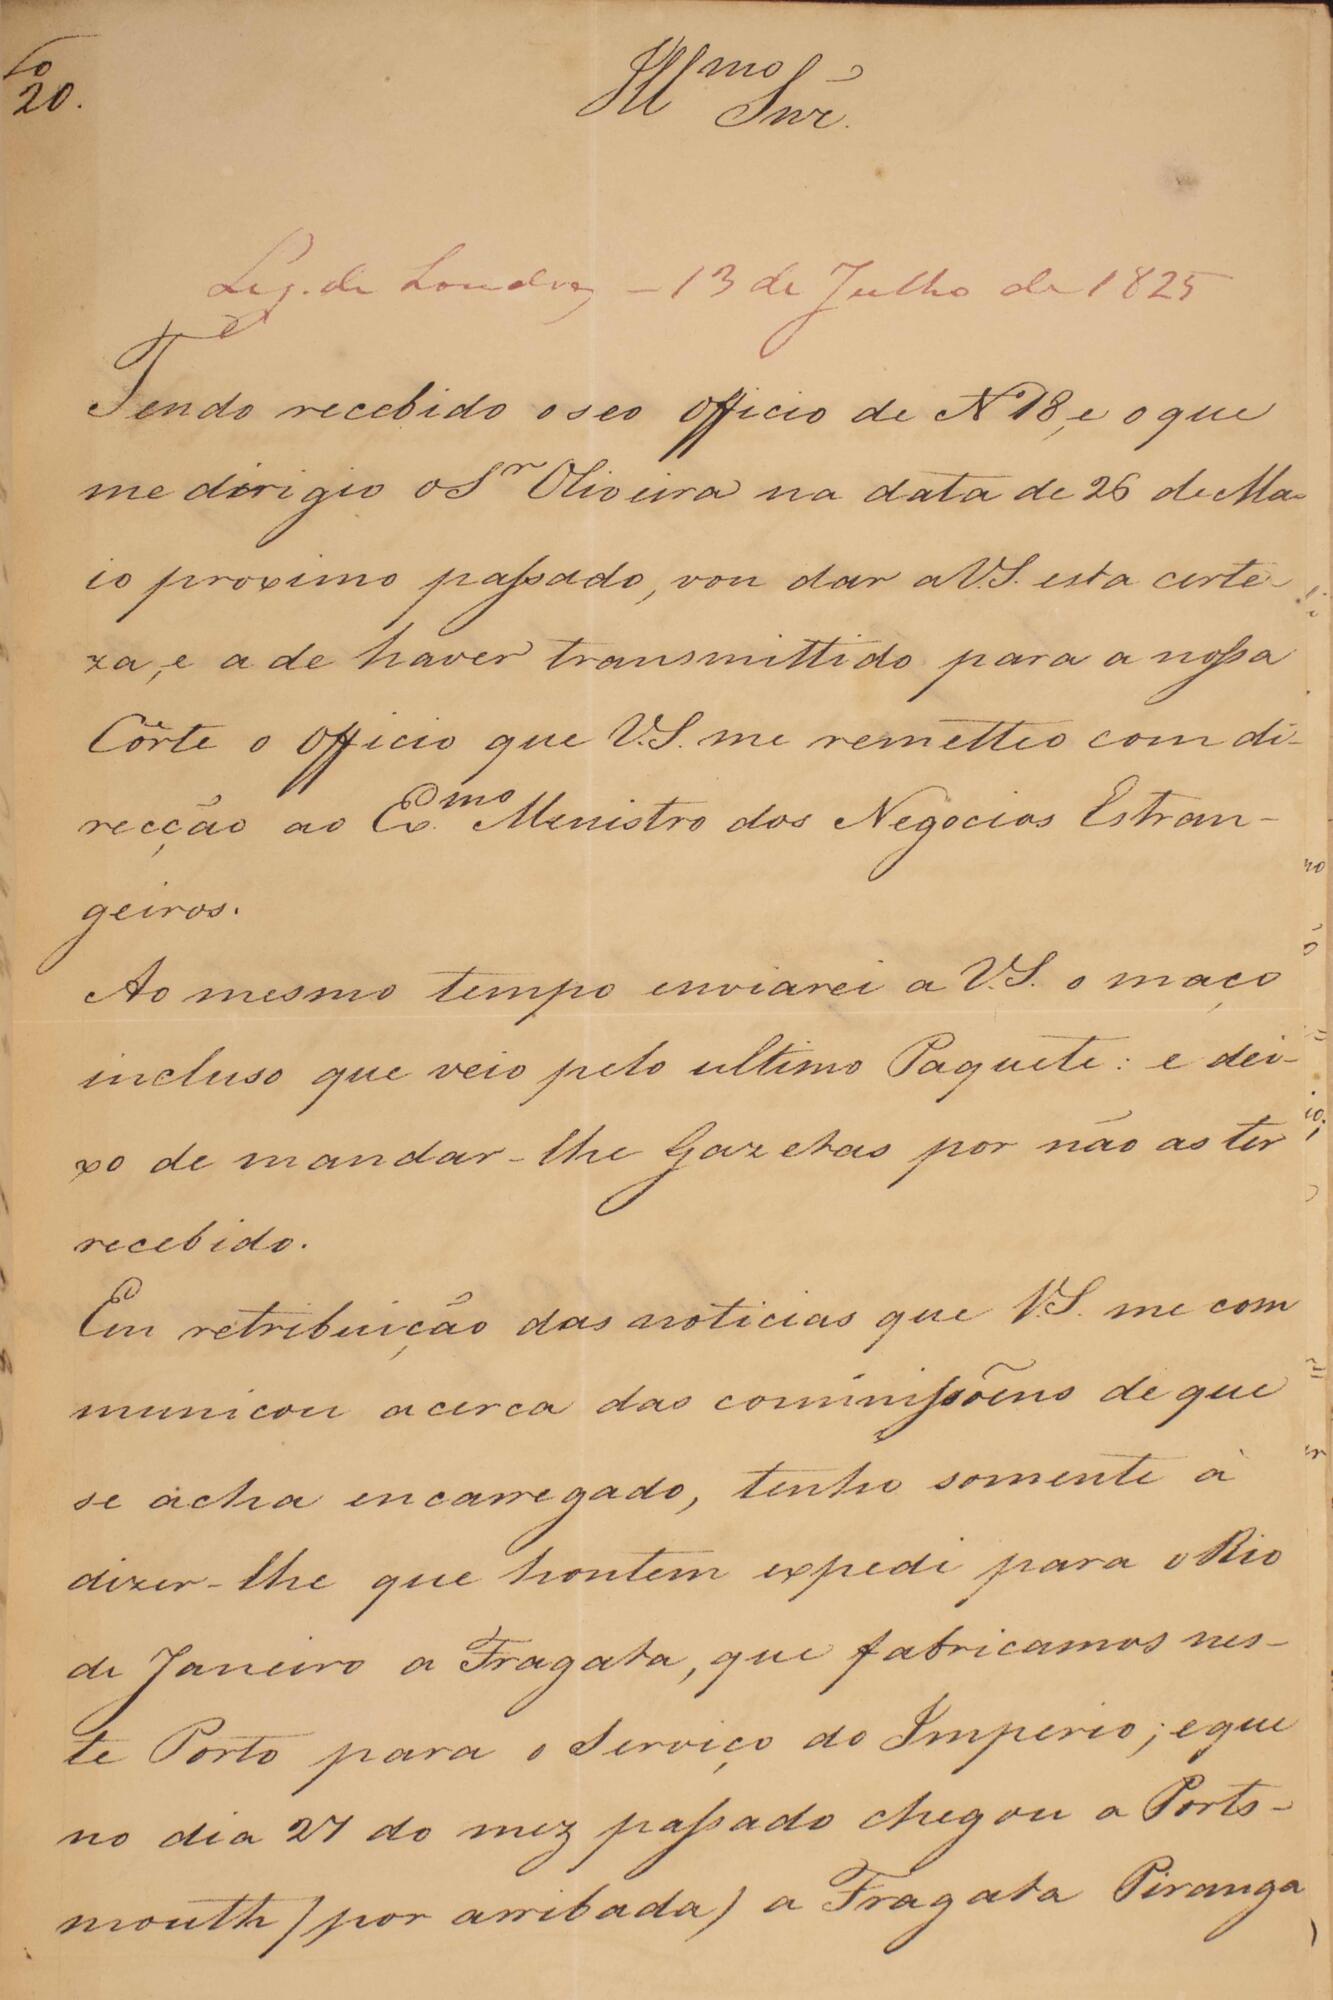 20.
Ill.mo Snr.
Leg. de Londres – 13 de Julho de 1825
Tendo recebido o seo officio de Nº 18, e o que
me dirigio o Sr Oliveira na data de 26 de Ma-
io proximo passado, vou dar a V.S. esta certe-
za, e a de haver transmittido para a nossa
Côrte o officio que V.S. me remetteo com di-
recção ao Ex.mo Ministro dos Negocios Estran-
geiros.
Ao mesmo tempo enviarei a V.S. o maço
incluso que veio pelo ultimo Paquete: e dei-
xo de mandar-lhe Gazetas por não as ter
recebido.
Em retribuição das noticias que V.S. me com
municou acerca das commissõens de que
se acha encarregado, tenho somente à
dizer-lhe que hontem expedi para o Rio
de Janeiro a Fragata, que fabricamos nes-
te Porto para o Serviço do Imperio; e que
no dia 27 do mez passado chegou a Ports-
mouth (por arribada) a Fragata Piranga